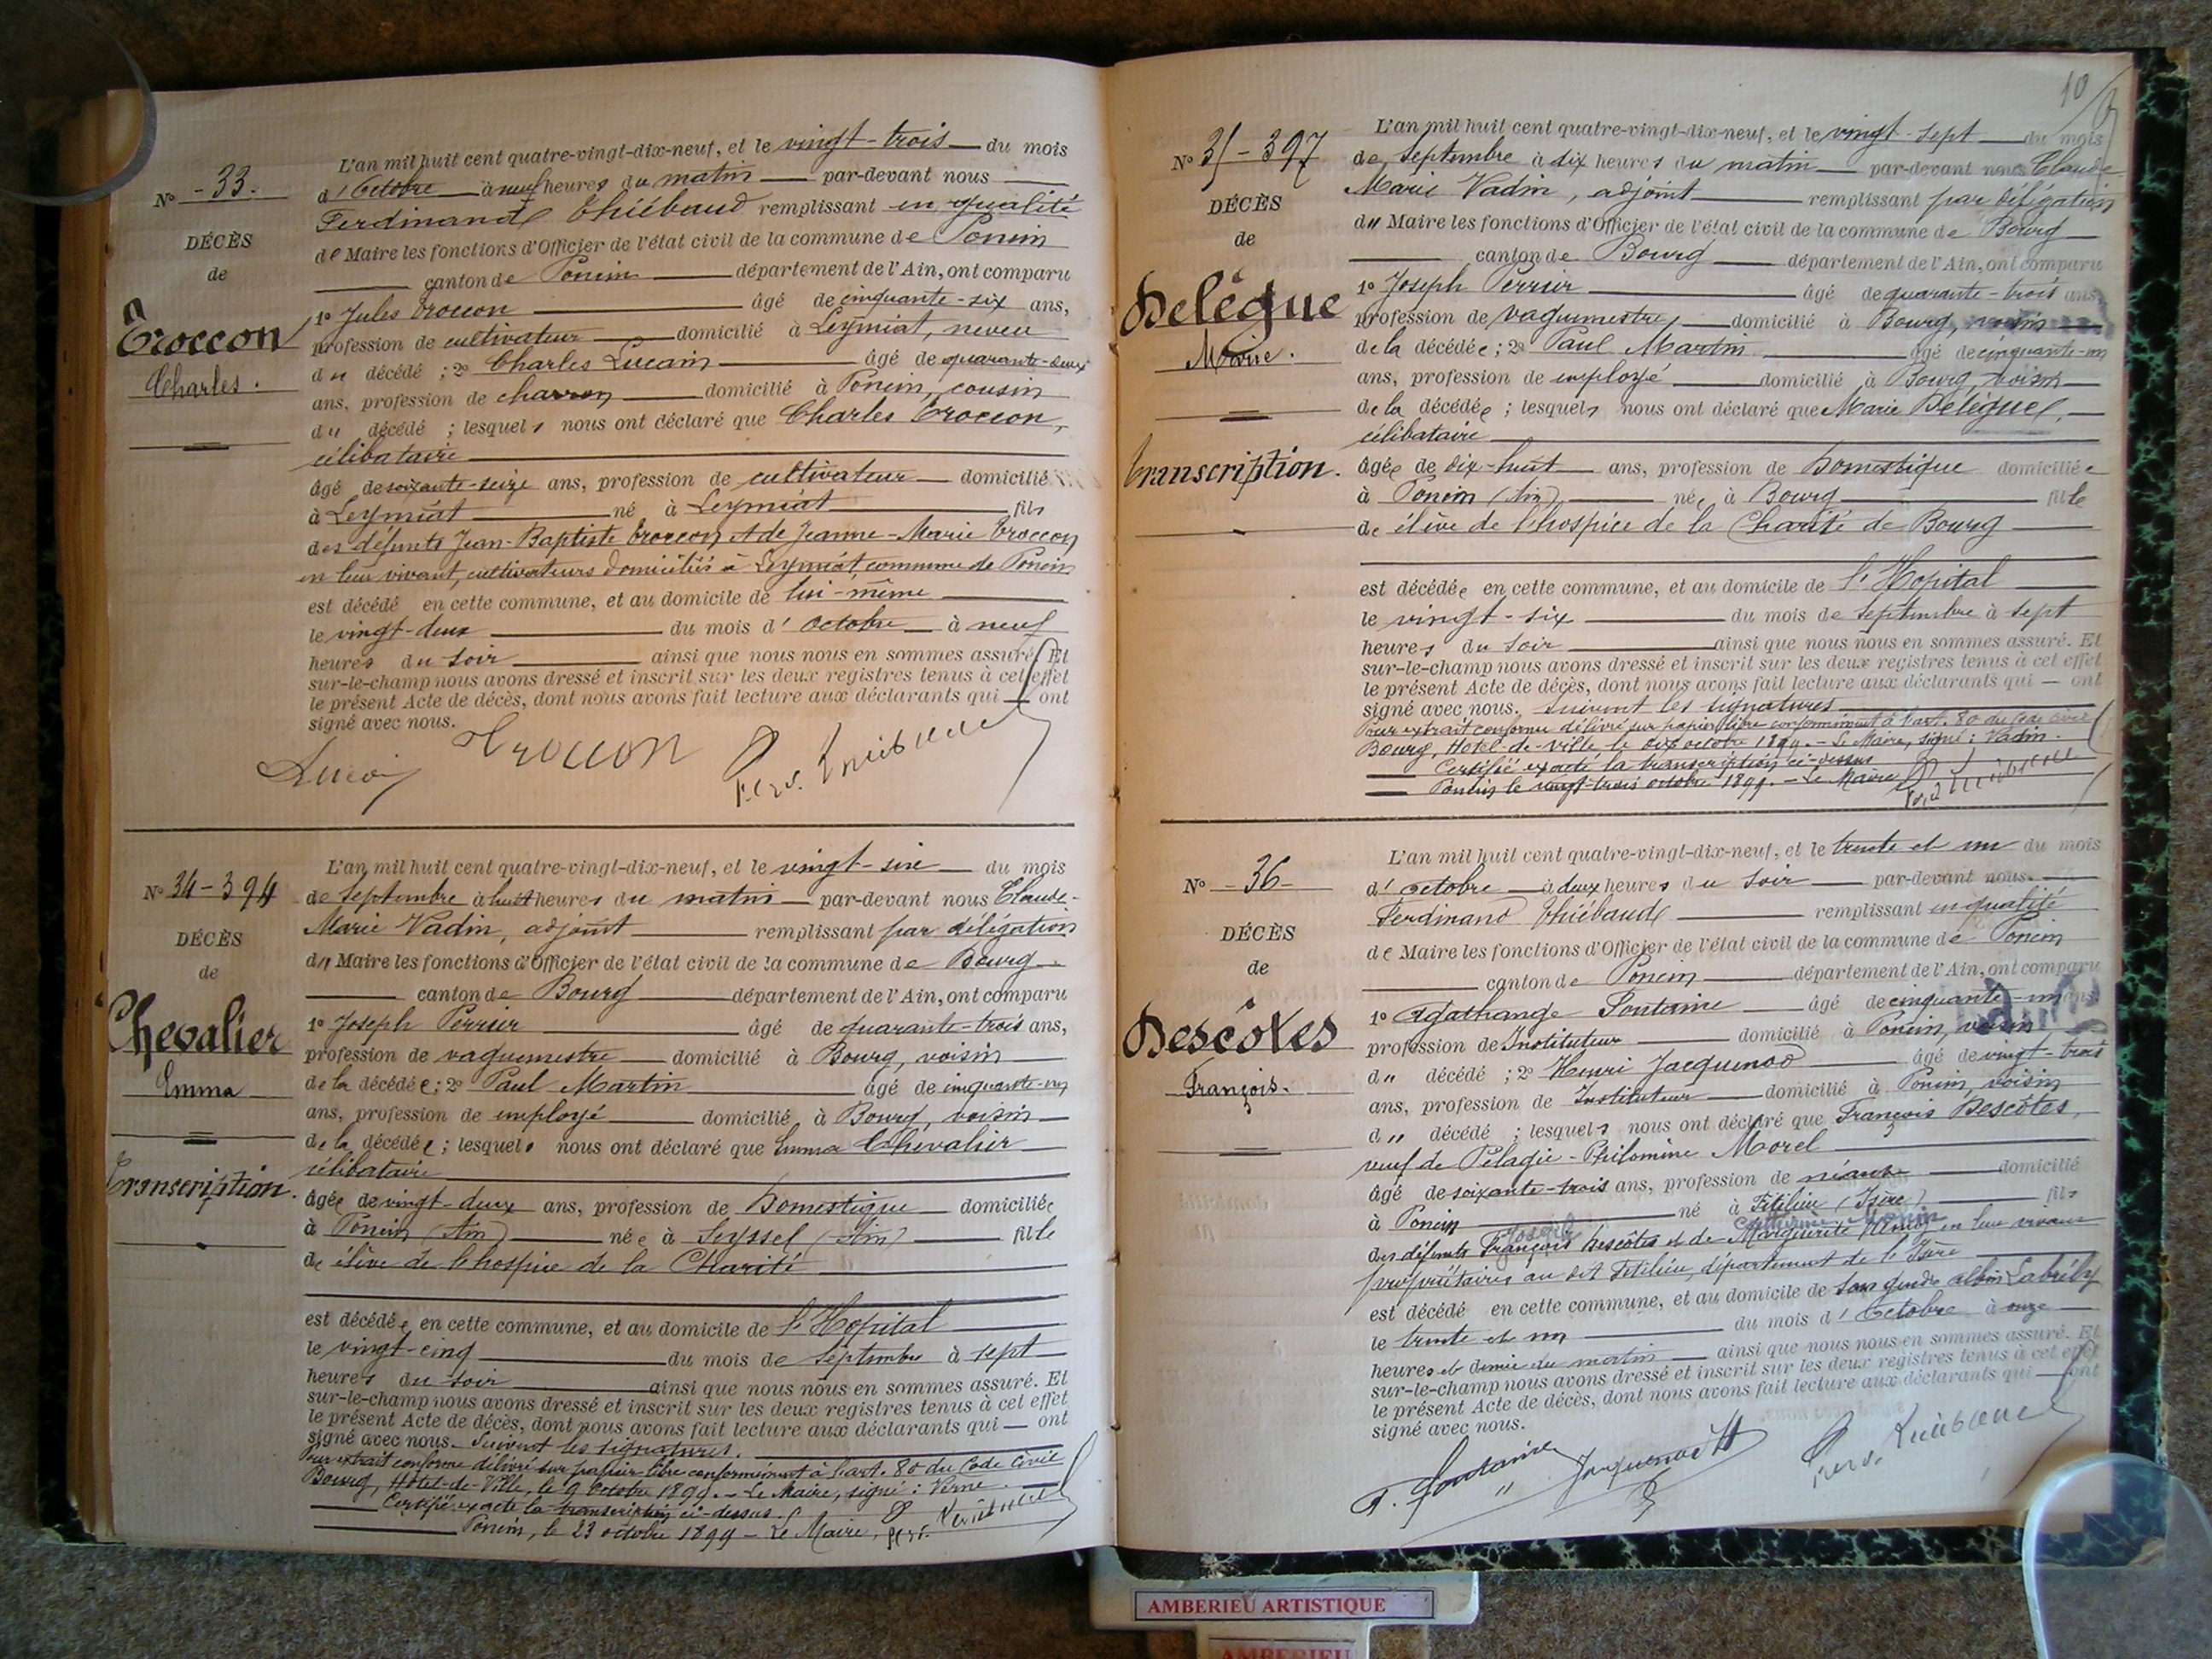 N° - 33. -
DÉCÈS
de
Troccon
Charles.
L'an mil huit cent quatre-vingt-dix-neuf, et le vingt-trois du mois
d'Octobre à neuf heures du matin par-devant nous
Ferdinand Thiébaud remplissant en qualité
de Maire les fonctions d'Officier de l'état civil de la commune de Poncin
canton de Poncin département de l'Ain, ont comparu
1° Jules Troccon âgé de cinquante-six ans,
profession de cultivateur domicilié à Leymiat, neveu
du décédé ; 2° Charles Lucain âgé de quarante-deux
ans, profession de charron domicilié à Poncin, cousin
du décédé ; lesquels nous ont déclaré que Charles Troccon,
célibataire
âgé de soixante-seize ans, profession de cultivateur domicilié
à Leymiat né à Leymiat fils
des défunts Jean-Baptiste Troccon et de Jeanne-Marie Troccon
en leur vivant, cultivateurs domiciliés à Leymiat, commune de Poncin
est décédé en cette commune, et au domicile de lui-même
le vingt-deux du mois d'octobre à neuf
heures du soir ainsi que nous nous en sommes assuré. Et
sur-le-champ nous avons dressé et inscrit sur les deux registres tenus à cet effet
le présent Acte de décès, dont nous avons fait lecture aux déclarants qui — ont
signé avec nous.
Lucain Troccon Ferd. Thiébaud
N° 34 - 394
DÉCÈS
de
Chevalier
Emma
Transcription.
L'an mil huit cent quatre-vingt-dix-neuf, et le vingt-six du mois
de Septembre à huit heures du matin par-devant nous Claude-
Marie Vadin, adjoint remplissant par délégation
du Maire les fonctions d'Officier de l'état civil de la commune de Bourg
canton de Bourg département de l'Ain, ont comparu
1° Joseph Perrier âgé de quarante-trois ans,
profession de vaguemestre domicilié à Bourg, voisin
de la décédée ; 2° Paul Martin âgé de cinquante-un
ans, profession de employé domicilié à Bourg, voisin
de la décédée ; lesquels nous ont déclaré que Emma Chevalier
célibataire
âgée de vingt-deux ans, profession de Domestique domiciliée
à Poncin (Ain) née à Seyssel (Ain) fille
de élève de l'hospice de la Charité
est décédée en cette commune, et au domicile de l'Hopital
le vingt-cinq du mois de Septembre à sept
heures du soir ainsi que nous nous en sommes assuré. Et
sur-le-champ nous avons dressé et inscrit sur les deux registres tenus à cet effet
le présent Acte de décès, dont nous avons fait lecture aux déclarants qui — ont
signé avec nous. Suivent les signatures.
Pour extrait conforme délivré sur papier libre conformément à l'art. 80 du Code Civil
Bourg, Hôtel-de-Ville, le 9 Octobre 1899. - Le Maire, signé : Verne
Certifié exacte la transcription ci-dessus.
Poncin, le 23 octobre 1899 - Le Maire, Ferd. Thiébaud
10
N° 35 - 397
DÉCÈS
de
Delègue
Marie.
Transcription.
L'an mil huit cent quatre-vingt-dix-neuf, et le vingt-sept du mois
de Septembre à dix heures du matin par-devant nous Claude
Marie Vadin, adjoint remplissant par délégation
du Maire les fonctions d'Officier de l'état civil de la commune de Bourg
canton de Bourg département de l'Ain, ont comparu
1° Joseph Perrier âgé de quarante-trois ans
profession de vaguemestre domicilié à Bourg, voisin
de la décédée ; 2° Paul Martin âgé de cinquante-un
ans, profession de employé domicilié à Bourg, voisin
de la décédée ; lesquels nous ont déclaré que Marie Delègue,
célibataire
âgée de dix-huit ans, profession de Domestique domiciliée
à Poncin (Ain) née à Bourg fille
de élève de l'hospice de la Charité de Bourg
est décédée en cette commune, et au domicile de l'Hopital
le vingt-six du mois de septembre à sept
heures du soir ainsi que nous nous en sommes assuré. Et
sur-le-champ nous avons dressé et inscrit sur les deux registres tenus à cet effet
le présent Acte de décès, dont nous avons fait lecture aux déclarants qui — ont
signé avec nous. Suivent les signatures
Pour extrait conforme délivré sur papier libre conformément à l'art. 80 du Code Civil
Bourg, Hotel-de-Ville, le dix octobre 1899. - Le Maire, signé : Vadin.
Certifié exacte la transcription ci-dessus
Poncin le vingt-trois octobre 1899. - Le Maire Ferd Thiébaud
N° - 36 -
DÉCÈS
de
Descôtes
François.
L'an mil huit cent quatre-vingt-dix-neuf, et le trente et un du mois
d'octobre à deux heures du soir par-devant nous
Ferdinand Thiébaud remplissant en qualité
de Maire les fonctions d'Officier de l'état civil de la commune de Poncin
canton de Poncin département de l'Ain, ont comparu
1° Agathange Fontaine âgé de cinquante-un ans
profession de Instituteur domicilié à Poncin, voisin
du décédé ; 2° Henri Jacquenod âgé de vingt-trois
ans, profession de Instituteur domicilié à Poncin, voisin
du décédé ; lesquels nous ont déclaré que François Descôtes,
veuf de Pélagie-Philomène Morel
âgé de soixante-trois ans, profession de néant domicilié
à Poncin né à Fitilieu (Isère) fils
Joseph Catherine Monin
des défunts François Descôtes et de Marguerite en leur vivant
propriétaires au dit Fitilieu, département de l'Isère
est décédé en cette commune, et au domicile de son gendre Albin Labrély
le trente et un du mois d'Octobre à onze
heures et demie du matin ainsi que nous nous en sommes assuré. Et
sur-le-champ nous avons dressé et inscrit sur les deux registres tenus à cet effet
le présent Acte de décès, dont nous avons fait lecture aux déclarants qui — ont
signé avec nous.
A. Fontaine Jacquenod H Ferd. Thiébaud
AMBERIEU ARTISTIQUE
AMBERIEU